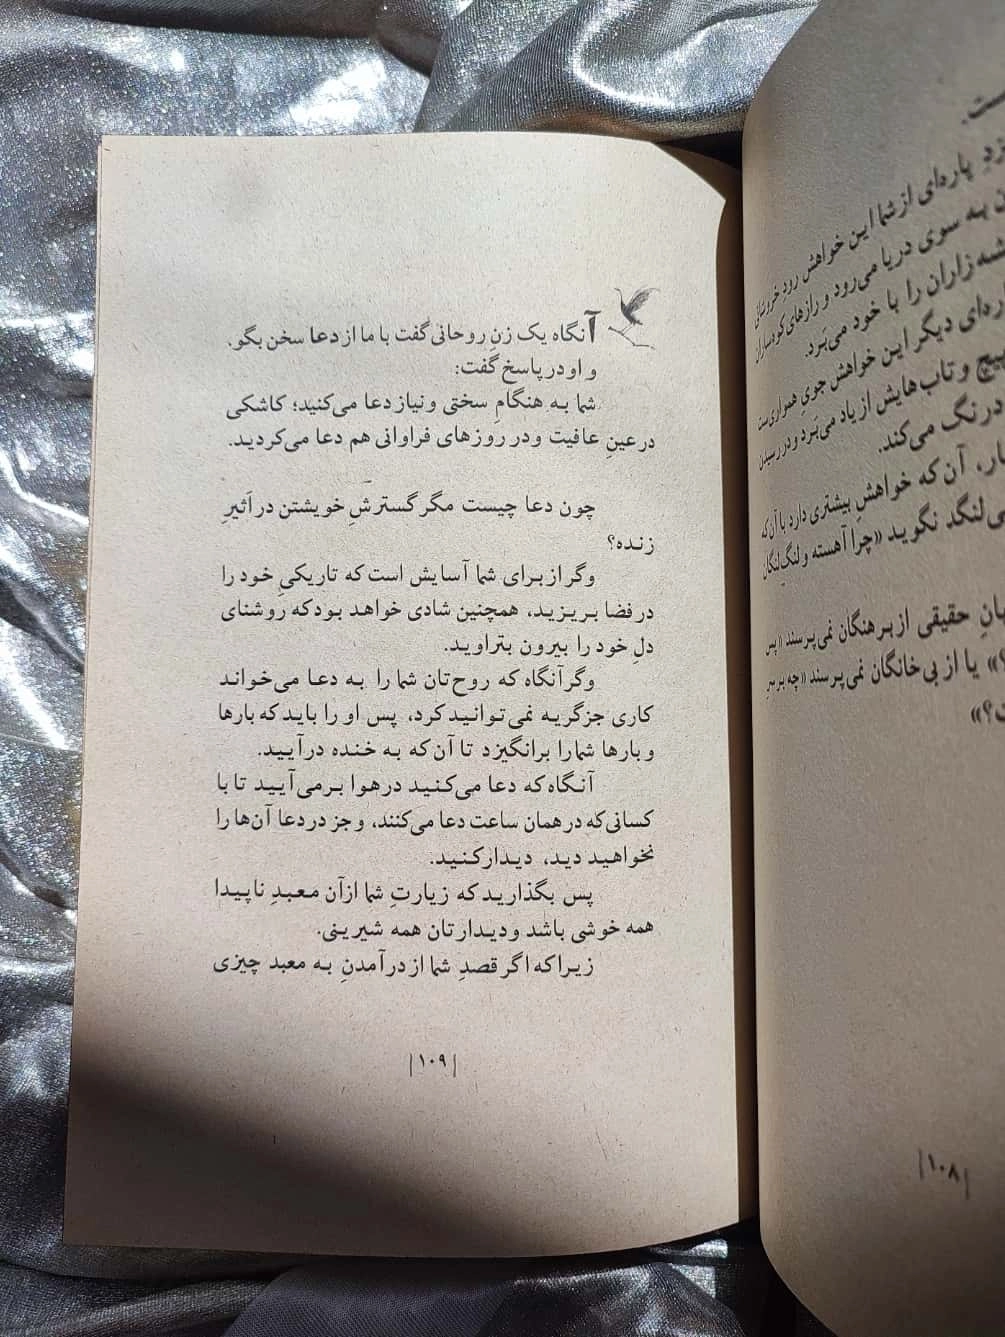 ست.
پاره‌ای از شما این خواهش رودِ خروشانی
به سوی دریا می‌رود و رازهای کوهساران
شه‌زاران را با خود می‌بَرد.
ره‌ای دیگر این خواهش جویِ همواری‌ست
پیچ و تاب‌هایش از یاد می‌بَرد و در رسیدن
درنگ می‌کند.
آن که خواهشِ بیشتری دارد با آن که
ی‌لنگد نگوید «چرا آهسته و لنگ‌لنگان
حقیقی از برهنگان نمی‌پرسند «پس
؟» یا از بی‌خانگان نمی‌پرسند «چه بر سرِ
ت؟»
|۱۰۸|
آنگاه یک زنِ روحانی گفت با ما از دعا سخن بگو.
و او در پاسخ گفت:
شما به هنگامِ سختی و نیاز دعا می‌کنید؛ کاشکی
در عینِ عافیت و در روزهای فراوانی هم دعا می‌کردید.
چون دعا چیست مگر گسترشِ خویشتن در اَثیرِ
زنده؟
وگر از برای شما آسایش است که تاریکیِ خود را
در فضا بریزید، همچنین شادی خواهد بود که روشنای
دلِ خود را بیرون بتراوید.
وگر آنگاه که روح‌تان شما را به دعا می‌خواند
کاری جز گریه نمی‌توانید کرد، پس او را باید که بارها
و بارها شما را برانگیزد تا آن که به خنده درآیید.
آنگاه که دعا می‌کنید در هوا برمی‌آیید تا با
کسانی که در همان ساعت دعا می‌کنند، و جز در دعا آن‌ها را
نخواهید دید، دیدار کنید.
پس بگذارید که زیارتِ شما از آن معبدِ ناپیدا
همه خوشی باشد و دیدارتان همه شیرینی.
زیرا که اگر قصدِ شما از درآمدنِ به معبد چیزی
|۱۰۹|